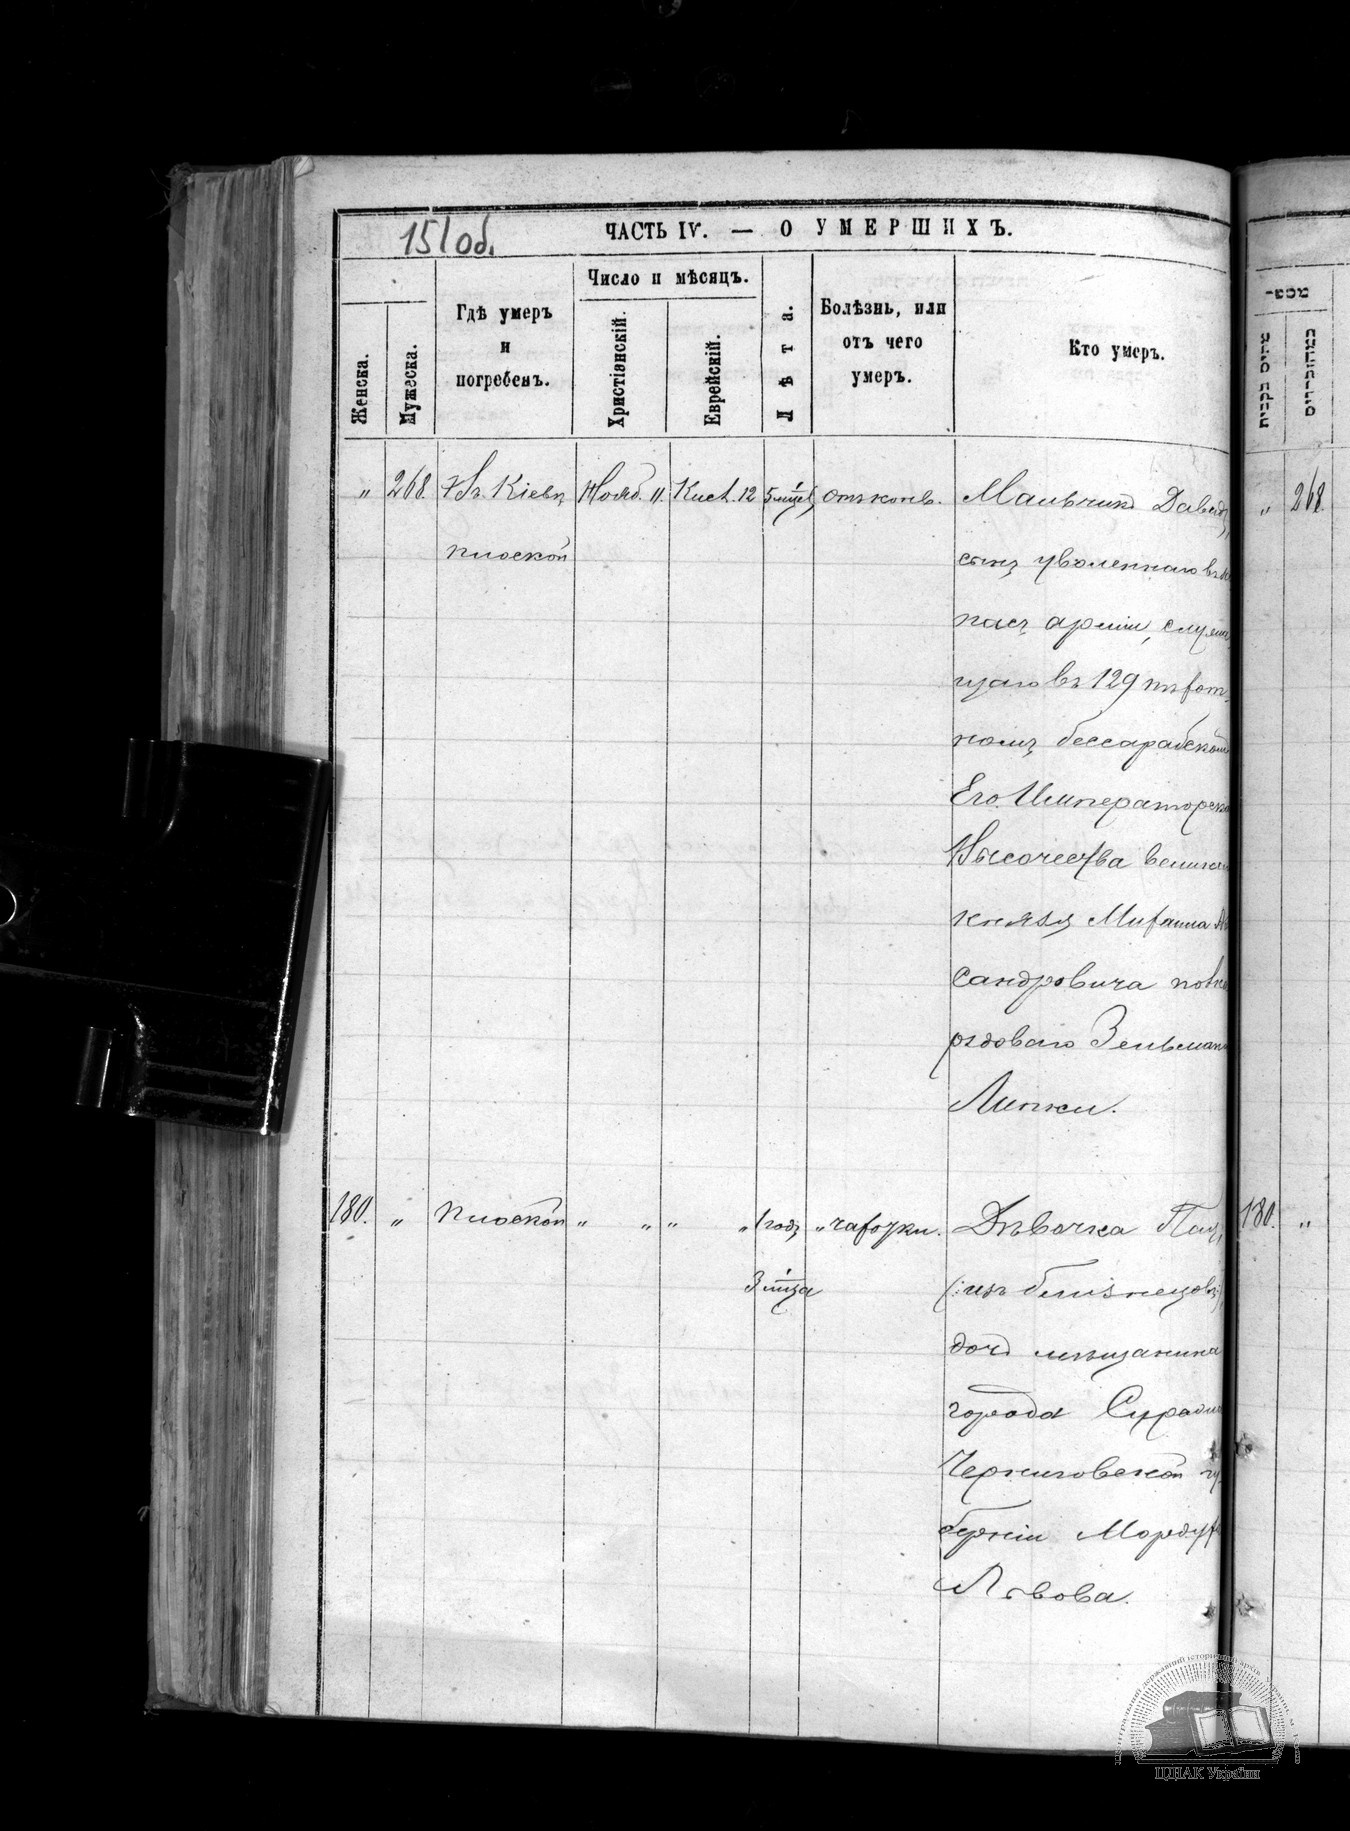 151 об.
ЧАСТЬ IV. — О УМЕРШИХЪ.
Женска.
Мужеска.
Гдѣ умеръ
и
погребенъ.
Число и мѣсяцъ.
Христіянскій.
Еврейскій.
Лѣта.
Болѣзнь, или
отъ чего
умеръ.
Кто умеръ.
„ 268. Въ Кіевѣ Нояб. 11. Кисл. 12 5 мѣс. отъ конв. Мальчикъ Давидъ,
плоской сынъ уволеннаго въ за
пасъ арміи, служив
шаго въ 129 пѣхот
номъ бессарабскомъ
Его Императорск
Высочества великаго
князя Михаила Ал
сандровича полка
рядоваго Зельмана
Липки.
180. „ плоской „ „ „ „ 1 годъ „ чахотки. Дѣвочка
3 мѣсца (:изъ близнецовъ:)
дочь мѣщанина
города Суража
Черниговской гу
берніи Мордуха
Львова.
מספ-
268
180. „
ЦДІАК України